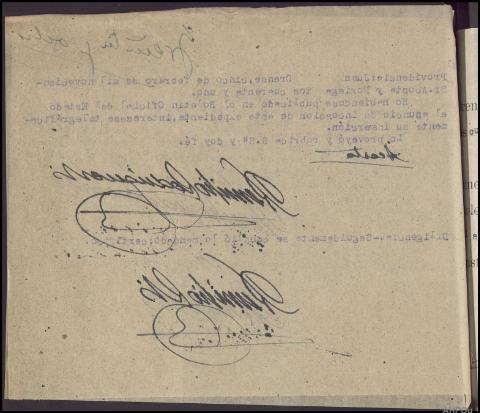 Providencia:Juez Orense, cinco de febrero de mil novecien-
Sr. Acosta y Noriega tos cuarenta y uno.
No habiendose publicado en el Boletin Oficial del Estado
el anuncio de incoacion de este expediente,interesese telegrafica-
mente su inserción.
Lo proveyó y rubrica S.Sª y doy fé.
Acosta
Diligencia.-Seguidamente se cumplió lo mandado;certifico.